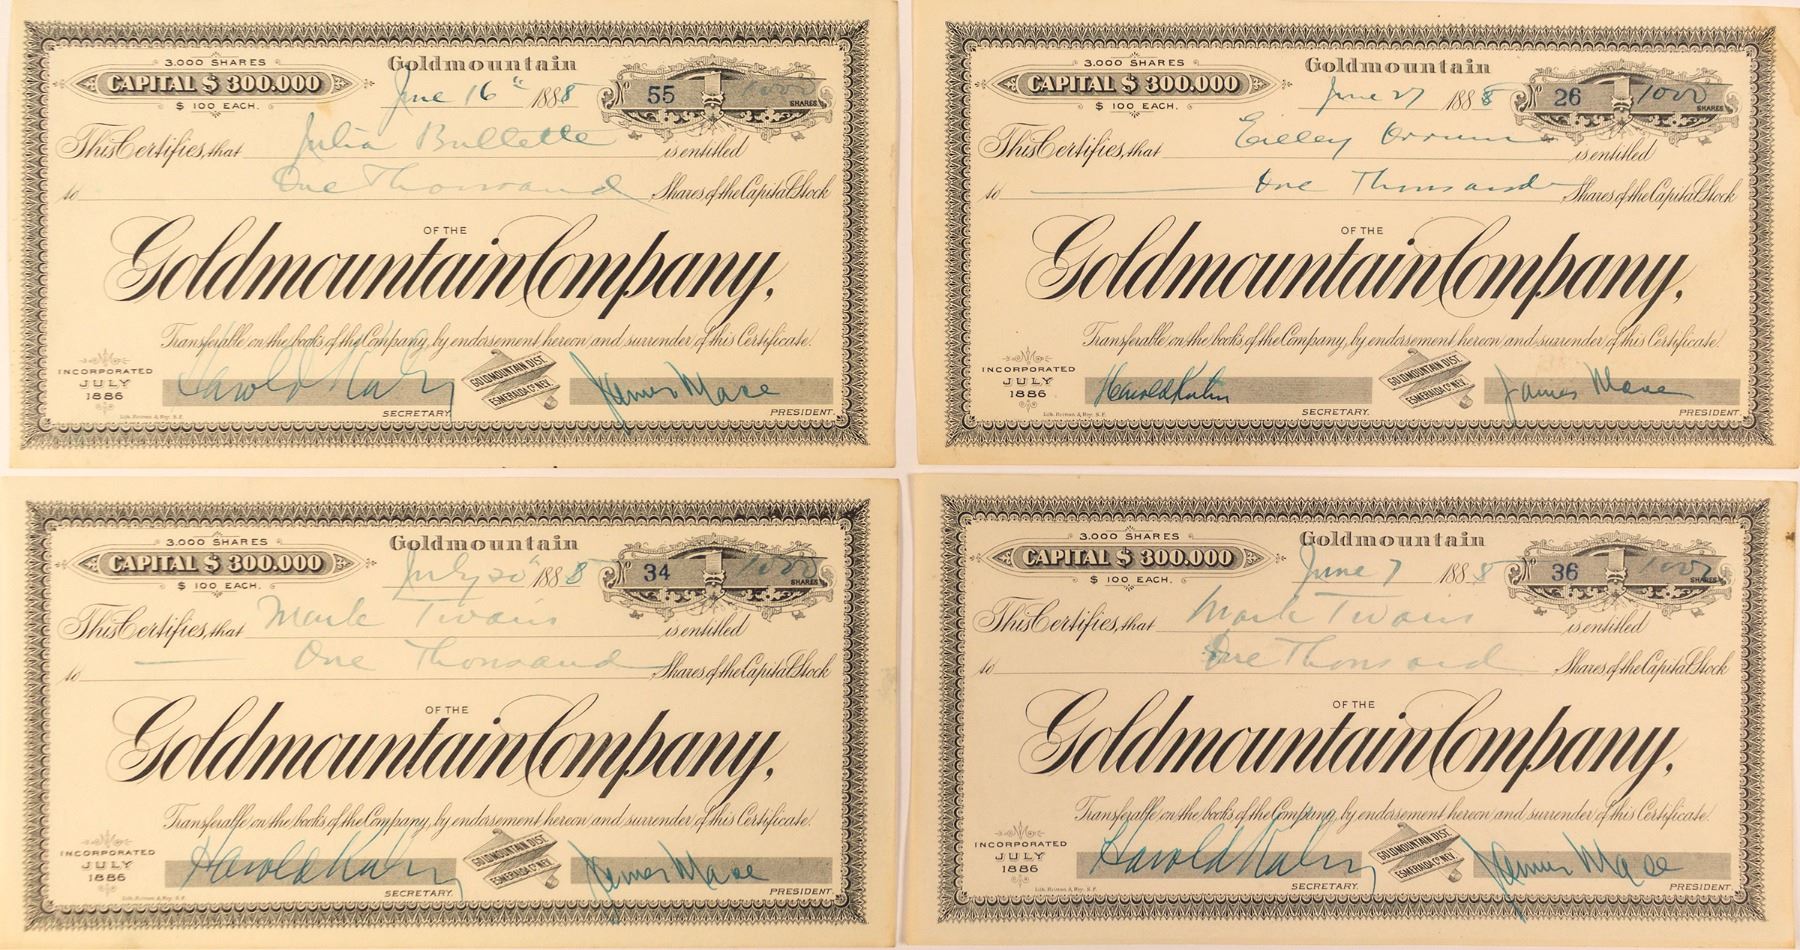 3.000 SHARES
CAPITAL $ 300.000
$ 100 EACH.
Goldmountain
June 16th 1888
No 55 1000 SHARES
This Certifies, that Julia Bullette is entitled
to One Thousand Shares of the Capital Stock
OF THE
Goldmountain Company,
Transferable on the books of the Company, by endorsement hereon and surrender of this Certificate.
INCORPORATED
JULY
1886
GOLDMOUNTAIN DIST.
ESMERALDA CO. NEV.
James Mace
SECRETARY.
PRESIDENT.
Lith. S.F.
3.000 SHARES
CAPITAL $ 300.000
$ 100 EACH.
Goldmountain
June 27 1888
No 26 1000 SHARES
This Certifies, that Eilley Orrum is entitled
to One Thousand Shares of the Capital Stock
OF THE
Goldmountain Company,
Transferable on the books of the Company, by endorsement hereon and surrender of this Certificate.
INCORPORATED
JULY
1886
GOLDMOUNTAIN DIST.
ESMERALDA CO. NEV.
James Mace
SECRETARY.
PRESIDENT.
Lith. S.F.
3.000 SHARES
CAPITAL $ 300.000
$ 100 EACH.
Goldmountain
July 20th 1888
No 34 1000 SHARES
This Certifies, that Mark Twain is entitled
to One Thousand Shares of the Capital Stock
OF THE
Goldmountain Company,
Transferable on the books of the Company, by endorsement hereon and surrender of this Certificate.
INCORPORATED
JULY
1886
GOLDMOUNTAIN DIST.
ESMERALDA CO. NEV.
Harold James Mace
SECRETARY.
PRESIDENT.
Lith. S.F.
3.000 SHARES
CAPITAL $ 300.000
$ 100 EACH.
Goldmountain
June 7 1888
No 36 1000 SHARES
This Certifies, that Mark Twain is entitled
to One Thousand Shares of the Capital Stock
OF THE
Goldmountain Company,
Transferable on the books of the Company, by endorsement hereon and surrender of this Certificate.
INCORPORATED
JULY
1886
GOLDMOUNTAIN DIST.
ESMERALDA CO. NEV.
Harold James Mace
SECRETARY.
PRESIDENT.
Lith. S.F.